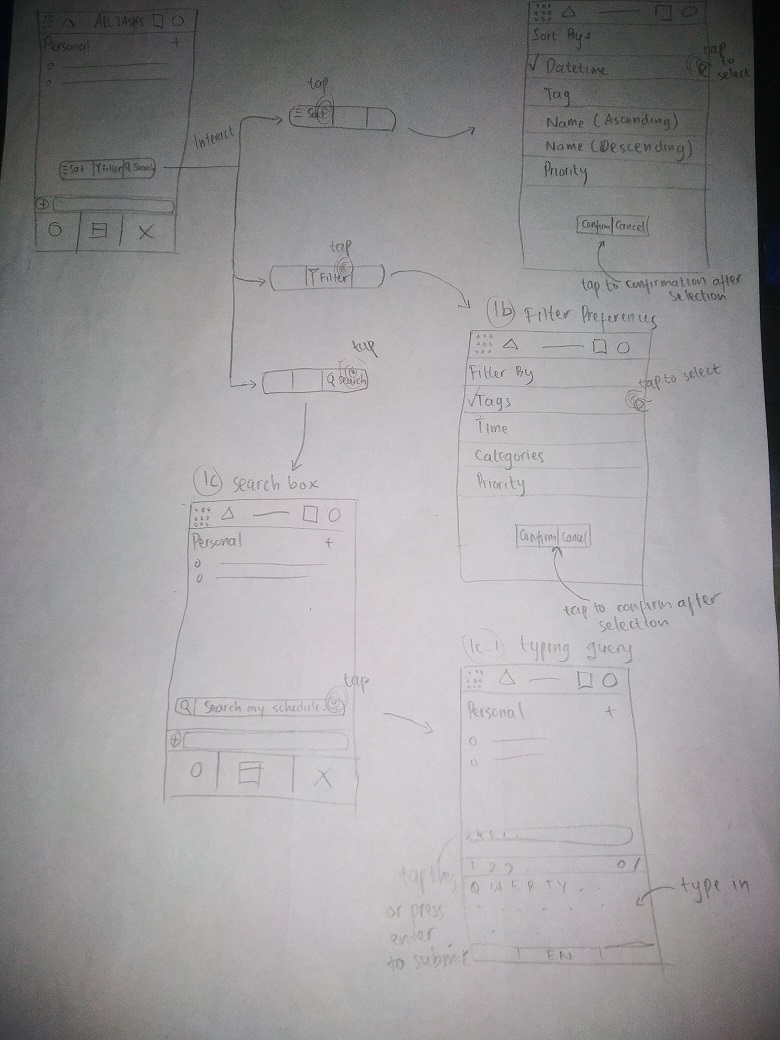 ALL TASKS
Personal +
Sort Filter Search
X
Interact
tap
Sort
Sort By:
tap to select
√ Datetime
Tag
Name (Ascending)
Name (Descending)
Priority
Confirm Cancel
tap to confirmation after selection
tap
Filter
1b Filter Preferences
Filter By
tap to select
√Tags
Time
Categories
Priority
Confirm Cancel
tap to confirm after selection
tap
Search
1c search box
Personal +
tap
Search my schedule
X
1c.1 typing query
Personal +
1 2 3 0 /
Q W E R T Y
EN
tap this or press enter to submit
type in